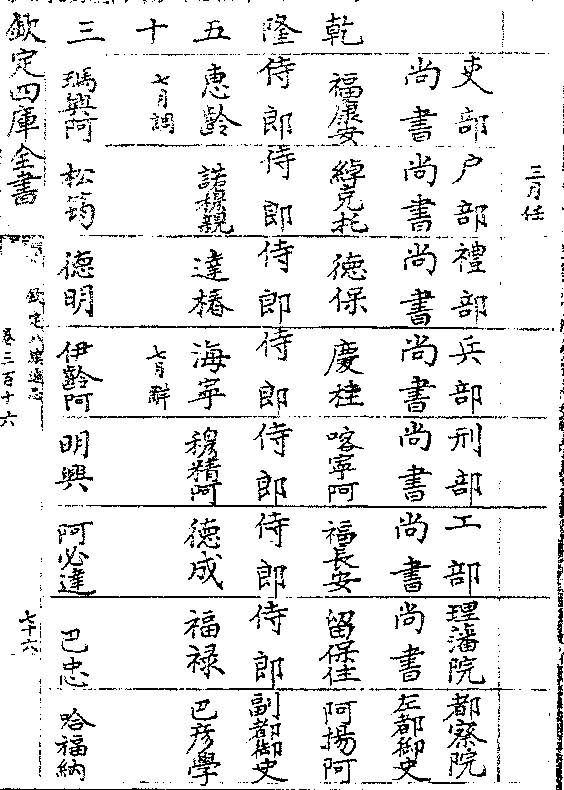 三月任
吏部 户部 禮部 兵部 刑部 工部 理藩院 都察院
尚書 尚書 尚書 尚書 尚書 尚書 尚書 左都御史
乾 福康安 綽克托 德保 慶桂 喀寧阿 福長安 留保住 阿揚阿
隆 侍郎 侍郎 侍郎 侍郎 侍郎 侍郎 侍郎 副都御史
五 惠齡 諾穆親 達椿 海寧 穆精阿 德成 福禄 巴彦學
十 七月調 七月辭
三 瑪興阿 松筠 德明 伊齡阿 明興 阿必達 巴忠 哈福納
欽定四庫全書
欽定八旗通志
卷三百十六
七十六